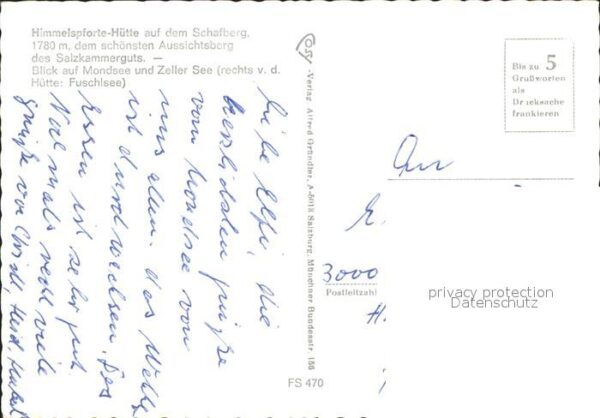 Himmelspforte-Hütte auf dem Schafberg,
1780 m, dem schönsten Aussichtsberg
des Salzkammerguts. —
Blick auf Mondsee und Zeller See (rechts v. d.
Hütte: Fuschlsee)
Liebe Elfi, die
herzlichsten Grüße
vom Mondsee von
uns allen. das Wetter
ist durchwachsen. Das
Essen ist sehr gut
Nochmals recht viele
Grüße von
Verlag Alfred Gründler, A-5013 Salzburg, Münchner Bundesstr. 156
FS 470
Bis zu 5
Grußworten
als
Drucksache
frankieren
An
E.
3000
Postleitzahl
H
privacy protection
Datenschutz